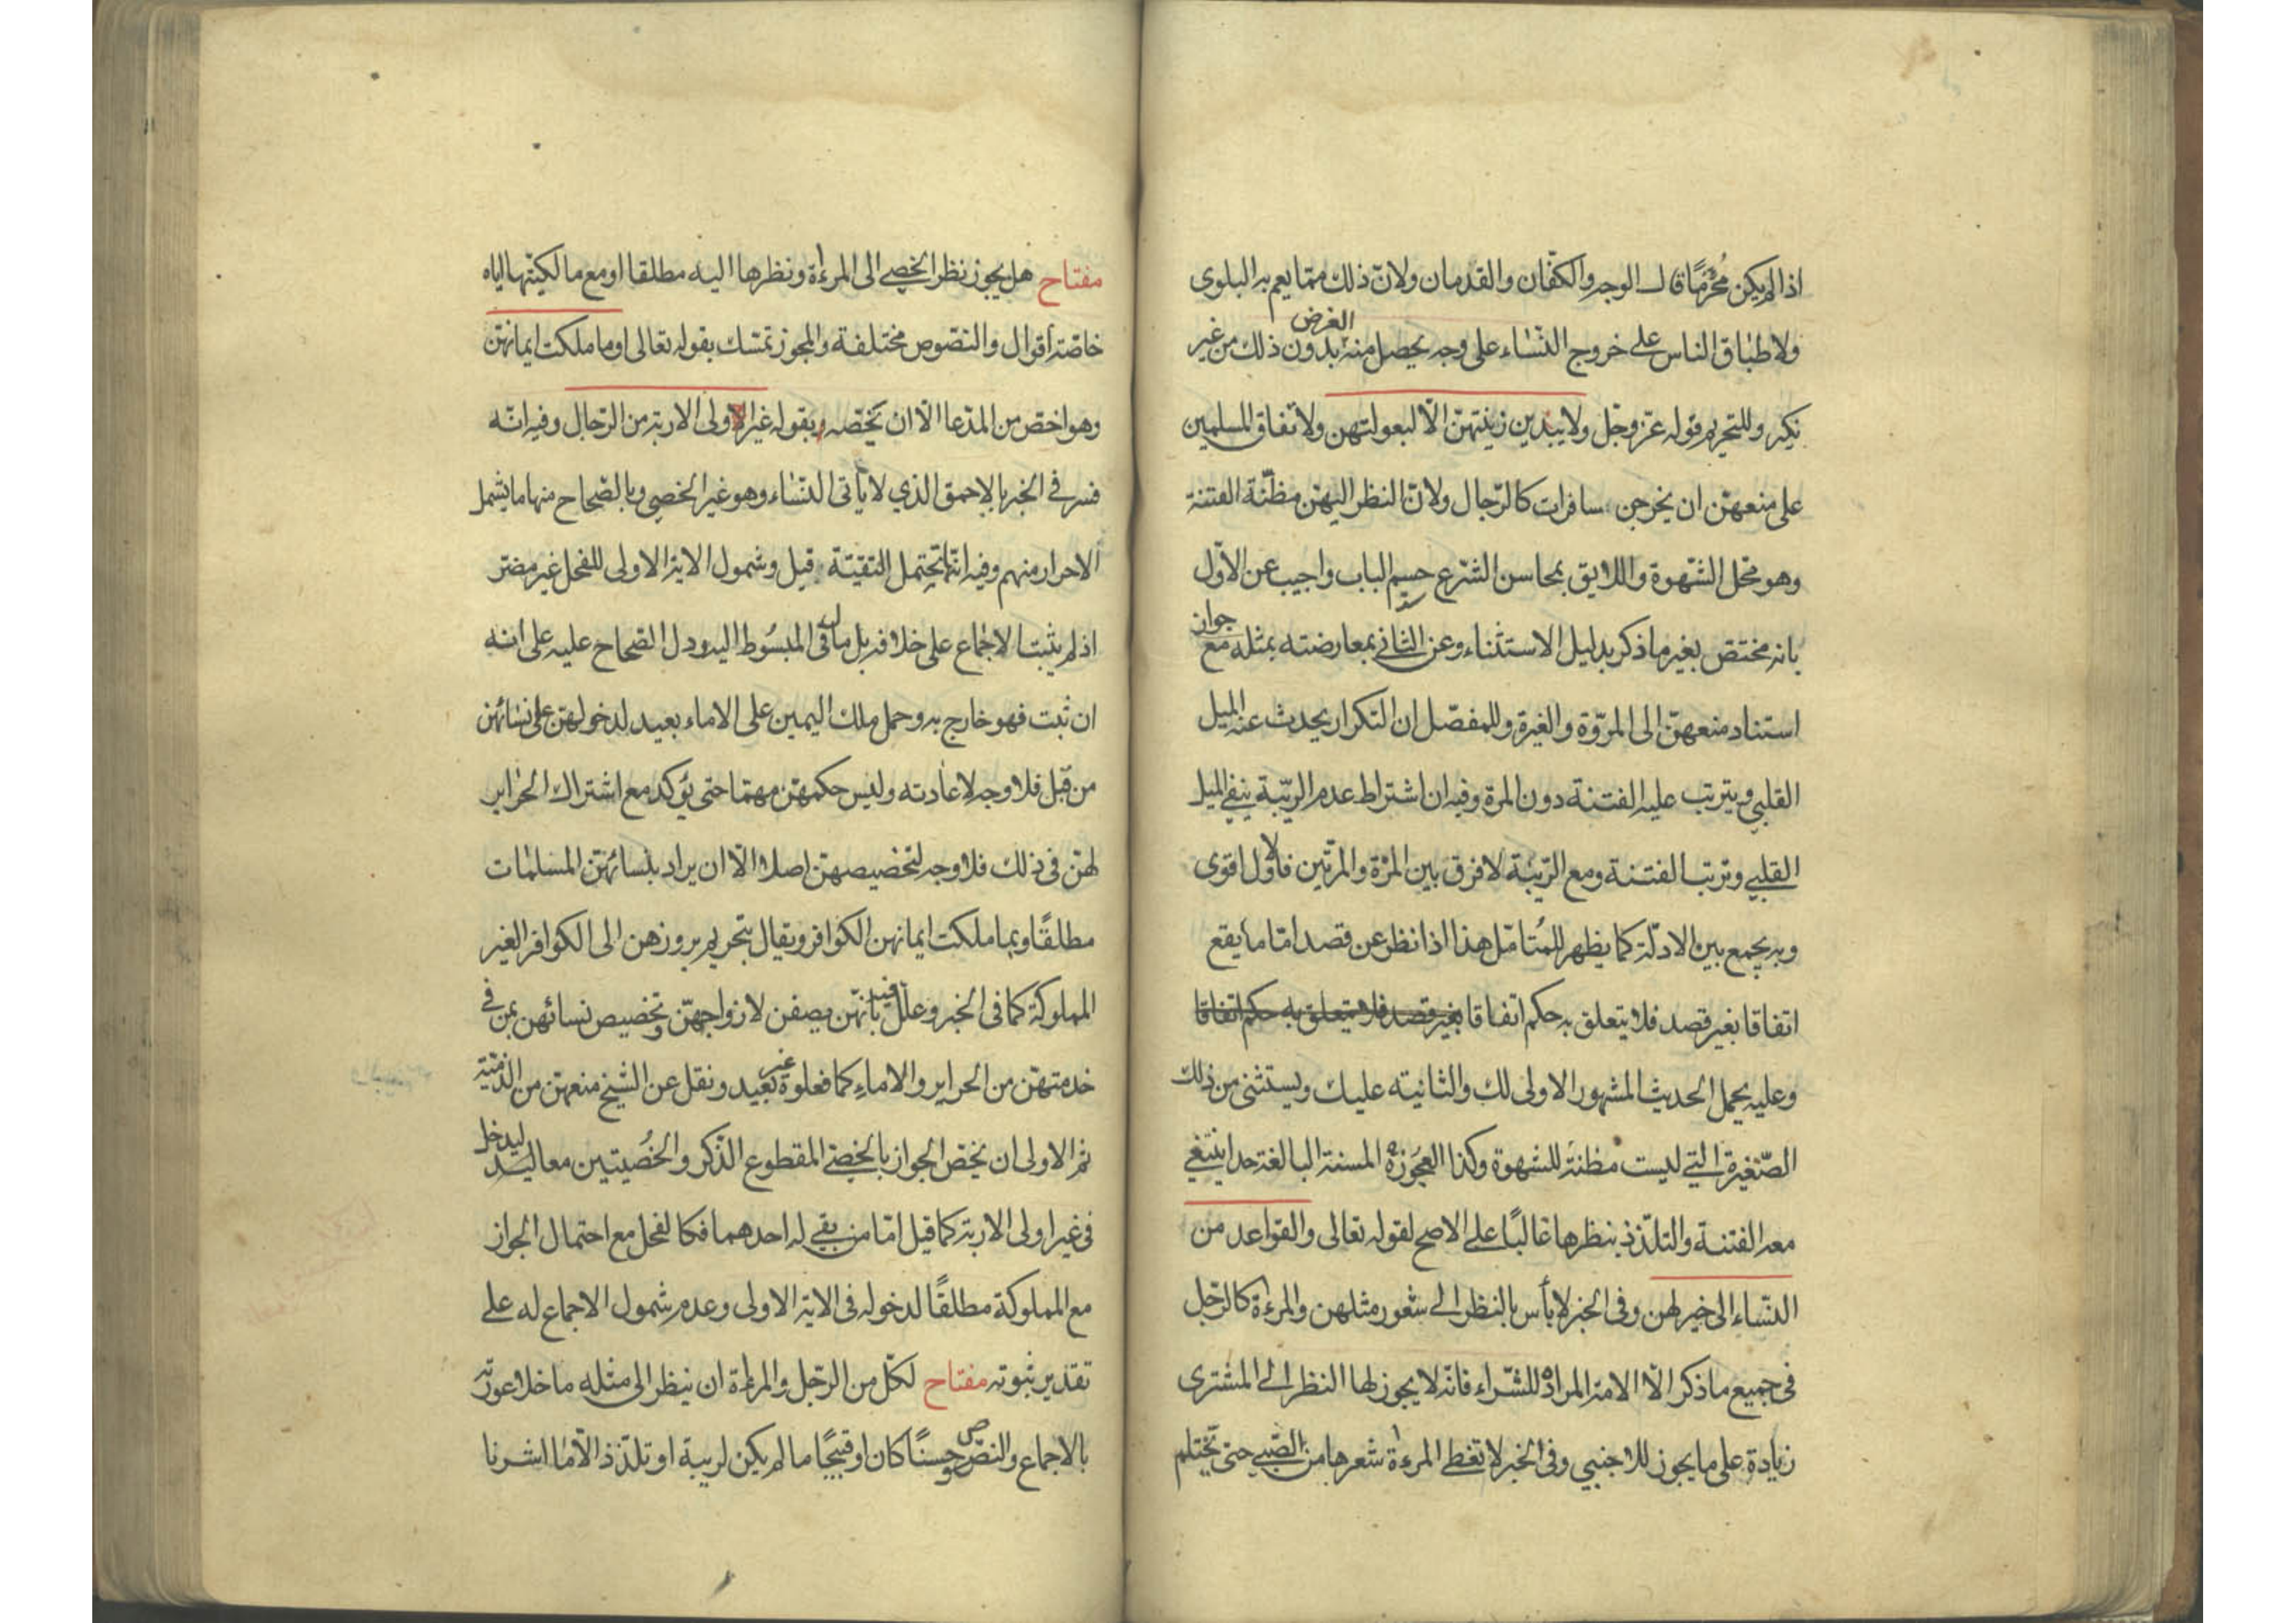 اذا لم يكن مُحْرَمًا قال الوجه والكفّان والقدمان ولانّ ذلك ممّا يعم به البلوى
ولاطباق الناس على خروج النّساء على وجه يحصل منه بدون ذلك من غير
الغرض
نكير وللتحريم قوله عزّ وجّل ولا يبدين زينتهنّ الّا لبعولتهن ولاتفاق المسلمين
على منعهنّ ان يخرجن سافرات كالرّجال ولانّ النظر اليهنّ مظنّة الفتنة
وهو محّل الشّهوة واللايق بمحاسن الشّرع حسم الباب واجيب عن الاوّل
بانه مختص بغير ما ذكر بدليل الاستثناء وعن الثاني بمعارضته بمثله مع
جواز
استناد منعهنّ الى المرّوة والغيرة وللمفصّل ان التكرار يحدث عنه الميل
القلبي ويترتب عليه الفتنة دون المرة وفيه ان اشتراط عدم الرّيبة ينفي الميل
القلبي وترتب الفتنة ومع الرّيبة لا فرق بين المرّة والمرّتين فالاول اقوى
وبه يجمع بين الادلّة كما يظهر للمُتامّل هذا اذا نظر عن قصد امّا ما يقع
اتفاقا بغير قصد فلا يتعلق به حكم اتفاقا بغير قصد فلا يتعلق به حكم اتفاقا
وعليه يحمل الحديث المشهور الاولى لك والثانيته عليك ويستثنى من ذلك
الصّغيرة التي ليست مظنة للشهوة وكذا العجوزة المسنة البالغة حدا ينتفي
معه الفتنة والتلذّذ بنظرها غالبًا على الاصح لقوله تعالى والقواعد من
النّساء الى خير لهن وفى الخبر لا بأس بالنظر الى شعور مثلهن والمرءة كالرّجل
فى جميع ما ذكر الّا الامة المرادة للشّراء فانّه لا يجوز لها النظر الى المشترى
زيادة على ما يجوز للاجنبي وفى الخبر لا تغطى المرءة شعرها من الصّبي حتى يحتلم
مفتاح هل يجوز نظر الخصي الى المرءة ونظرها اليه مطلقا او مع مالكيّتها اياه
خاصّة أقوال والنصّوص مختلفة والمجوز تمسّك بقوله تعالى او ما ملكت ايمانهنّ
وهو اخصّ من المدّعا الّا ان يخصّه وبقوله غير اولى الاربة من الرّجال وفيه انّه
فسر فى الخبر بالاحمق الذي لا يأتى النّساء وهو غير الخصي وبالصّحاح منها ما يشمل
الاحرار منهم وفيه انّها تحتمل التقيّة قيل وشمول الاية الاولى للفحل غير مضرّ
اذ لم يثبت الاجماع على خلافه بل مال فى المبسُوط اليه ودل الصّحاح عليه على انه
ان ثبت فهو خارج به وحمل ملك اليمين على الاماء بعيد لدخولهنّ على نسائهن
من قبل فلا وجه لاعادته وليس حكمهنّ مهمّا حتى يؤكد مع اشتراك الحراير
لهنّ فى ذلك فلا وجه لتخصيصهنّ اصلا الّا ان يراد بنسائهنّ المسلمات
مطلقًا وبما ملكت ايمانهن الكوافر ويقال بتحريم بروزهن الى الكوافر الغير
المملوكة كما فى الخبر وعلل فيه بانهّن يصفن لازواجهّن وتخصيص نسائهن بمن فى
خدمتهنّ من الحراير والاماء كما فعلوه غير بعيد ونقل عن الشيخ منعهنّ من الذّميّة
ثم الاولى ان يخصّ الجواز بالخصيّ المقطوع الذّكر والخُصيتين معا ليدخل
فى غير اولى الاربة كما قيل امّا من بقي له احدهما فكالفحل مع احتمال الجواز
مع المملوكة مطلقًا لدخوله فى الاية الاولى وعدم شمول الاجماع له على
تقدير ثبوته مفتاح لكلّ من الرّجل والمرءة ان ينظر الى مثله ما خلا عورته
بالاجماع والنصّ حسنًا كان او قبيحًا ما لم يكن لريبة او تلذّذ الّا ما اشرنا